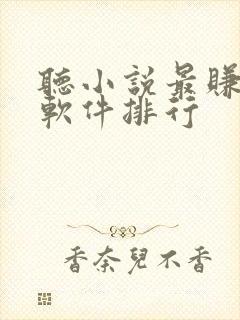 聽小說最賺
軟件排行
香奈兒不香